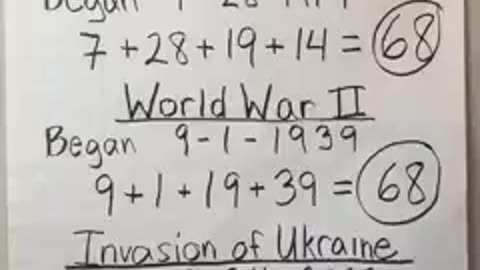 Began 7-28-1914
7+28+19+14 = 68
World War II
Began 9-1-1939
9+1+19+39 = 68
Invasion of Ukraine